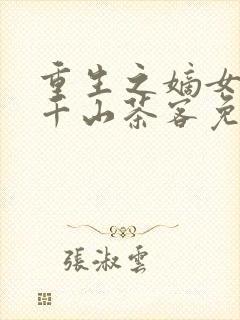 重生之嫡女
千山茶客免
張淑雲